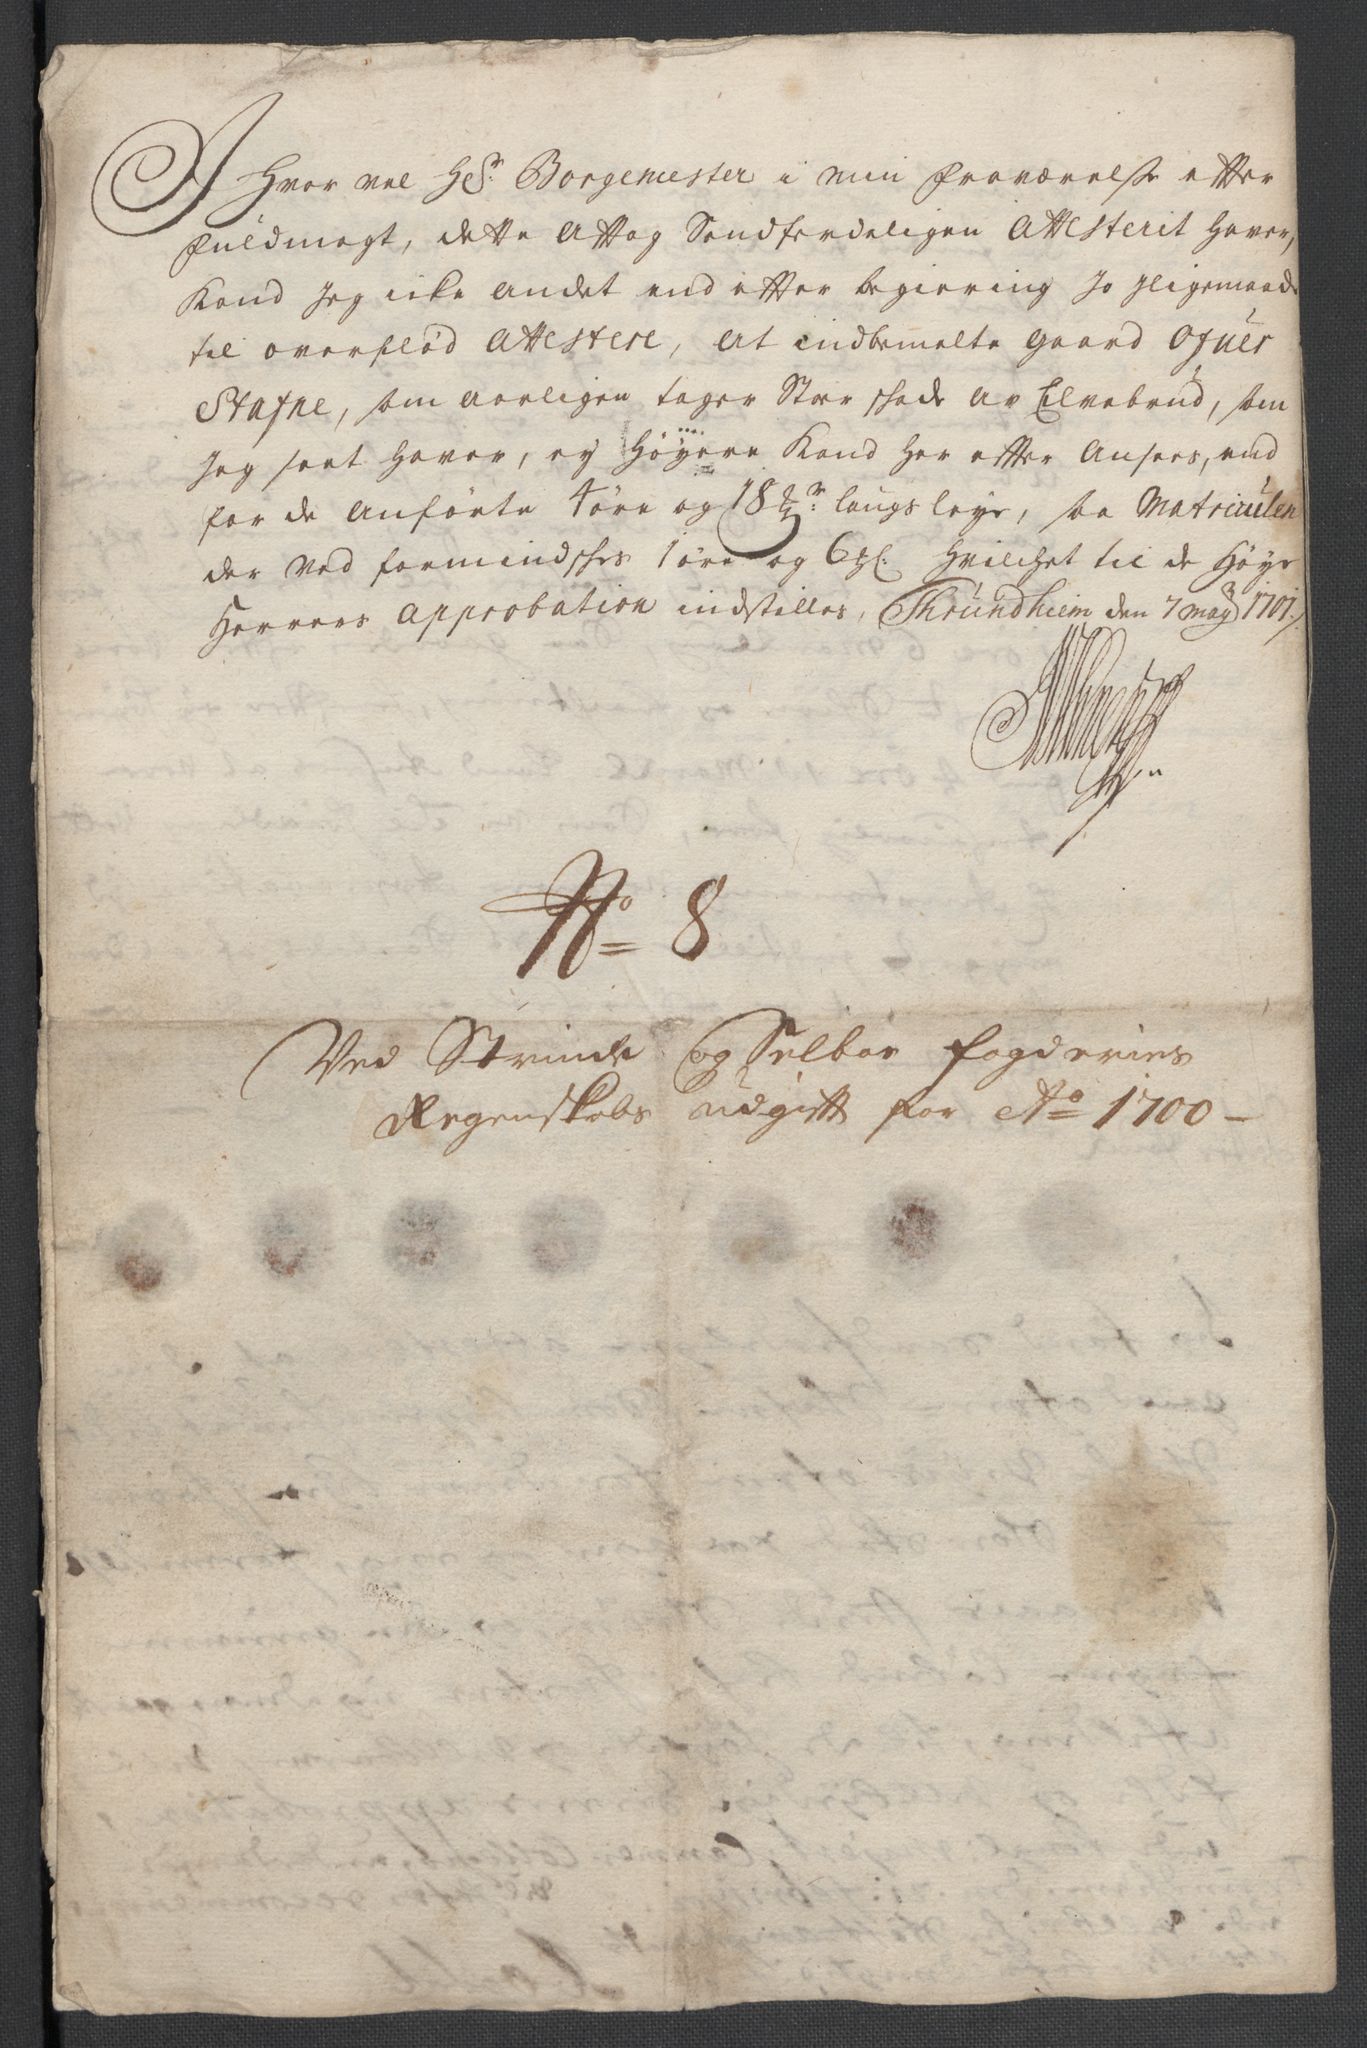 Hvor vel Hr: Borgemester i min fraværelse efter
fuldmagt, dette Attog Sandferdeligen Attesterit haver,
Kand Jeg icke andet end efter begiering Jo Jligemaade
til overflod Attestere, at indbemelte gaard Ofuer
Stafne, som aarligen tager Stor shade av Elvebrud, som
Jeg seet haver, ey Høyere Kand her efter Ansees, end
for de anförte 4 öre og 18 laugs leye, saa Matriculen
der ved formindsches 1 öre og 6 hvilchet til de Høye
Herrers approbation indstilles, Thrundhiem den 7 May 1701
No 8
Ved Strinde og Selboe fogderies
Regenskabs udgift for Ao 1700 –